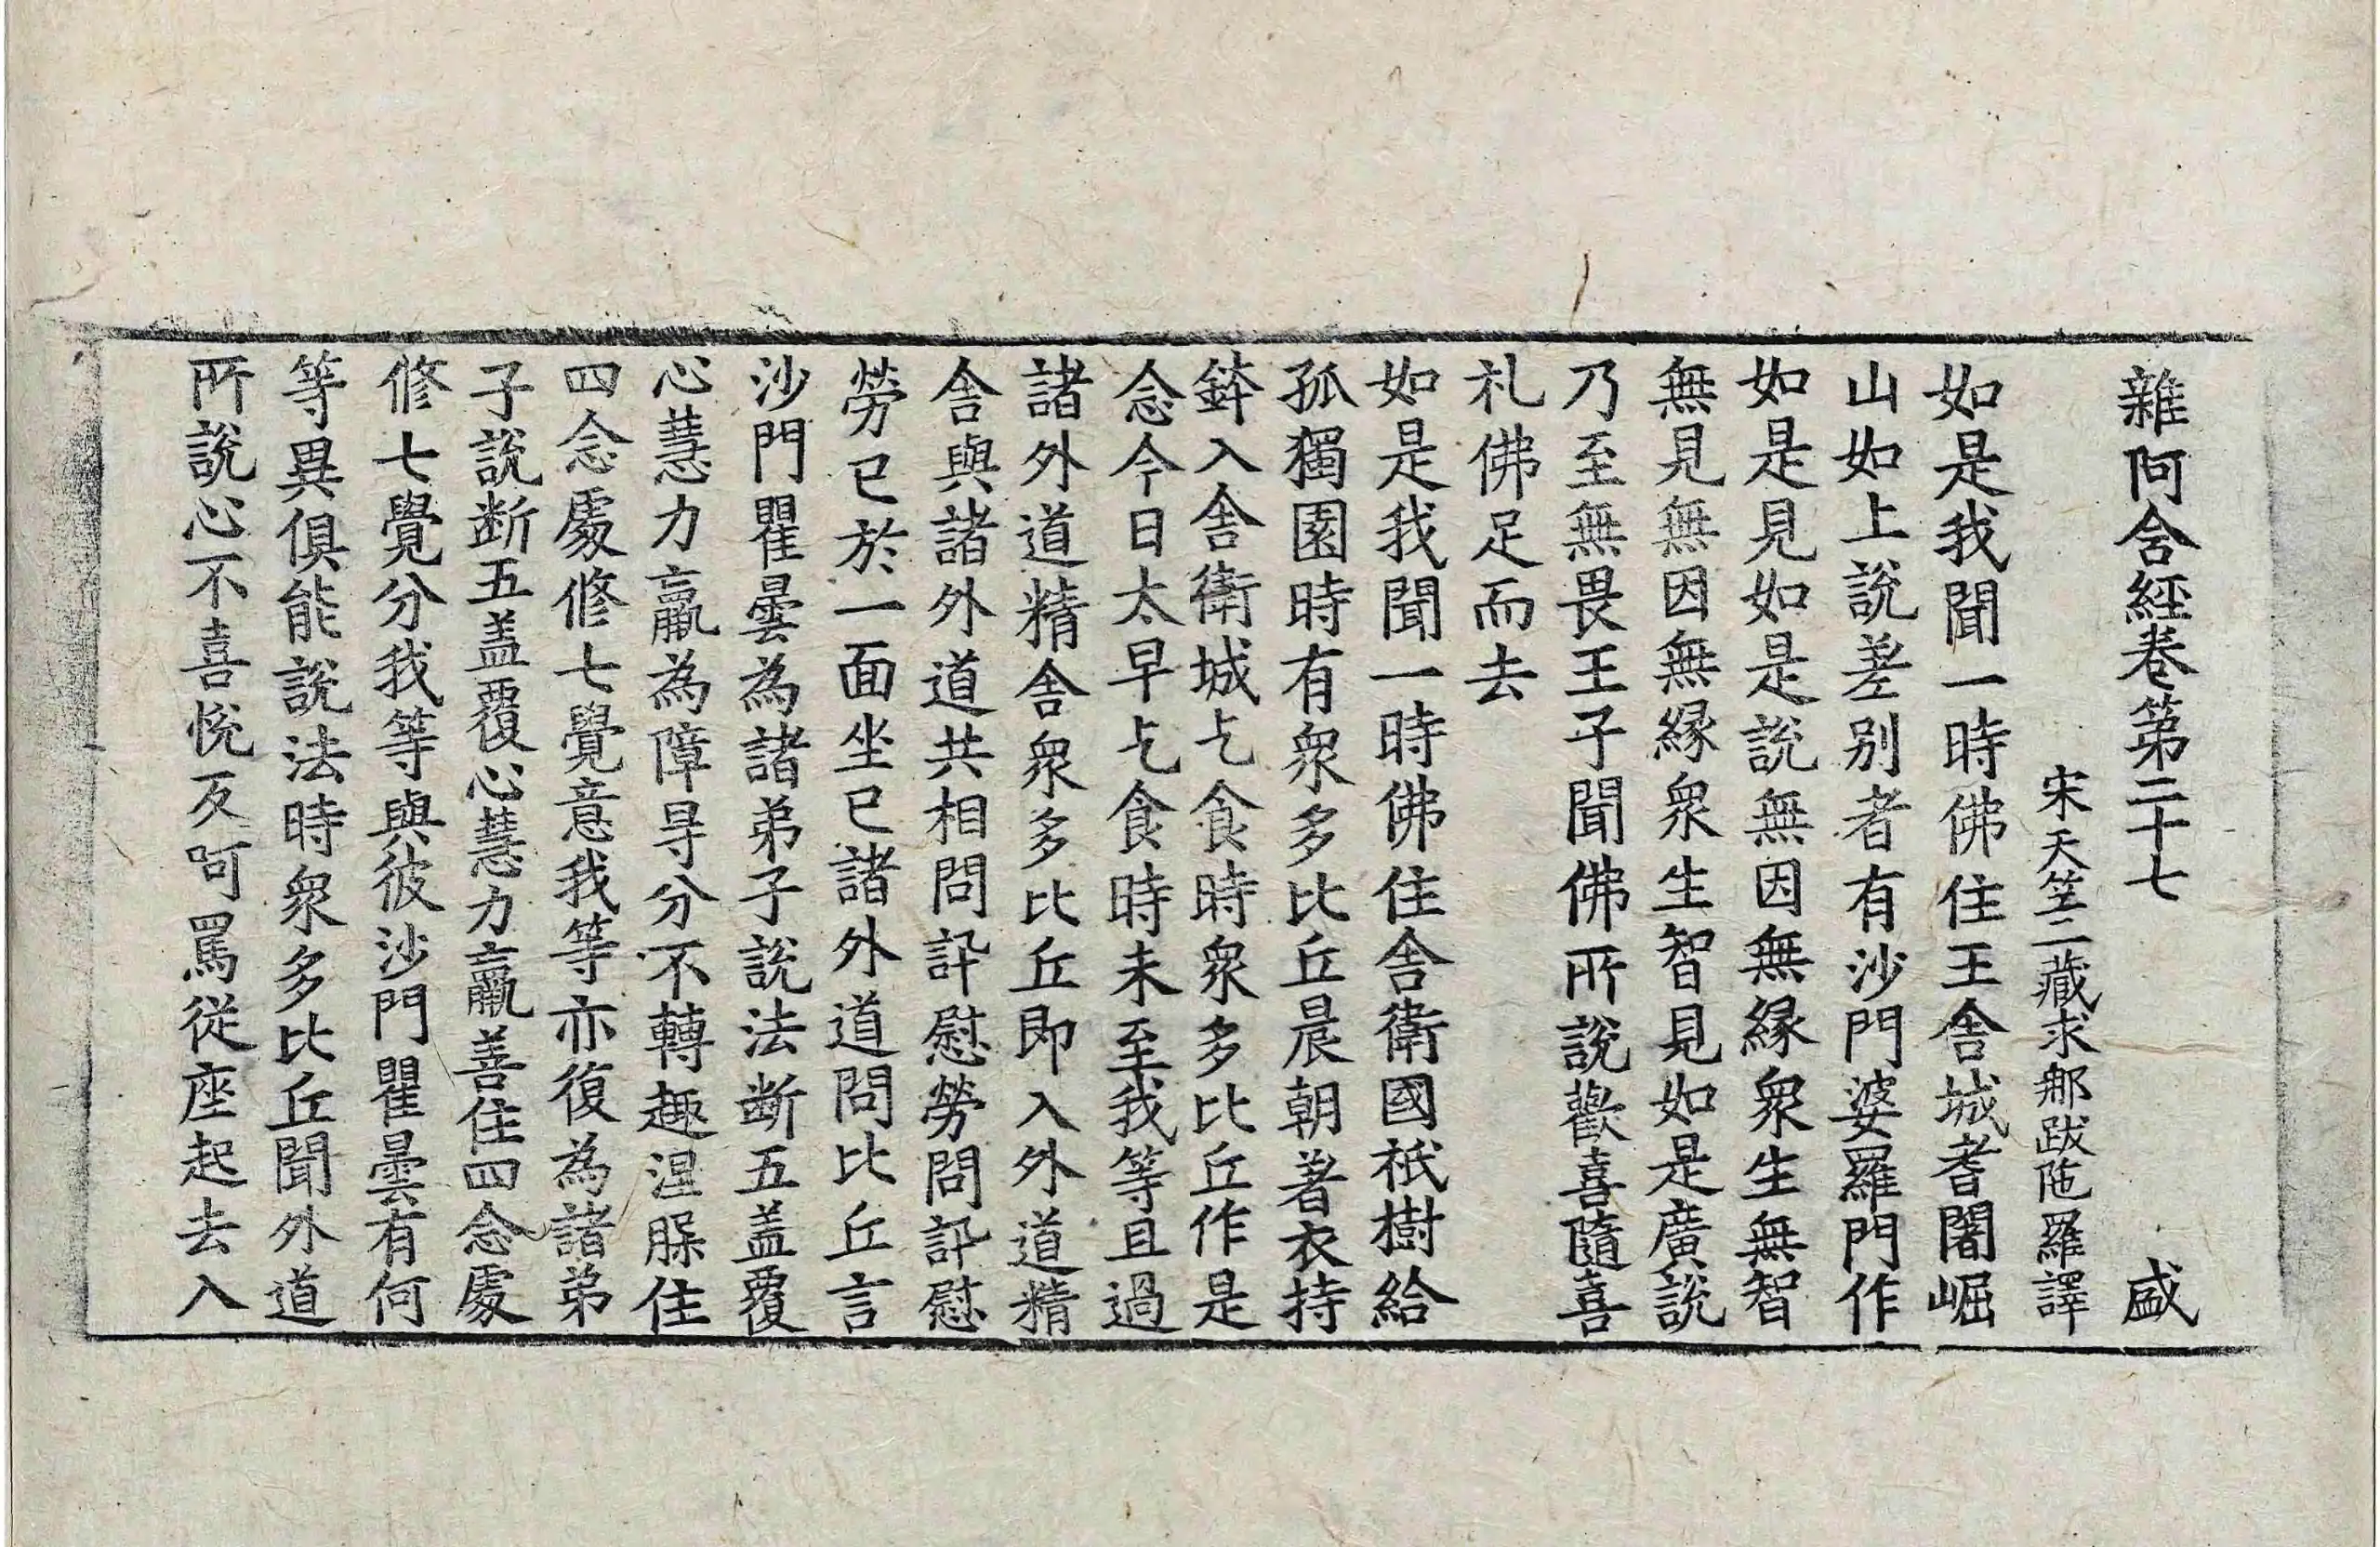 雜阿含經卷第二十七 盛
宋天竺三藏求那跋陁羅譯
如是我聞一時佛住王舍城耆闍崛
山如上說差別者有沙門婆羅門作
如是見如是說無因無緣衆生無智
無見無因無緣衆生智見如是廣說
乃至無畏王子聞佛所說歡喜隨喜
礼佛足而去
如是我聞一時佛住舍衛國祇樹給
孤獨園時有衆多比丘晨朝著衣持
鉢入舍衛城乞食時衆多比丘作是
念今日太早乞食時未至我等且過
諸外道精舍衆多比丘即入外道精
舍與諸外道共相問訊慰勞問訊慰
勞已於一面坐已諸外道問比丘言
沙門瞿曇為諸弟子說法断五盖覆
心慧力羸為障㝵分不轉趣涅槃住
四念處修七覺意我等亦復為諸弟
子說断五盖覆心慧力羸善住四念處
修七覺分我等與彼沙門瞿曇有何
等異俱能說法時衆多比丘聞外道
所說心不喜悅反呵罵從座起去入